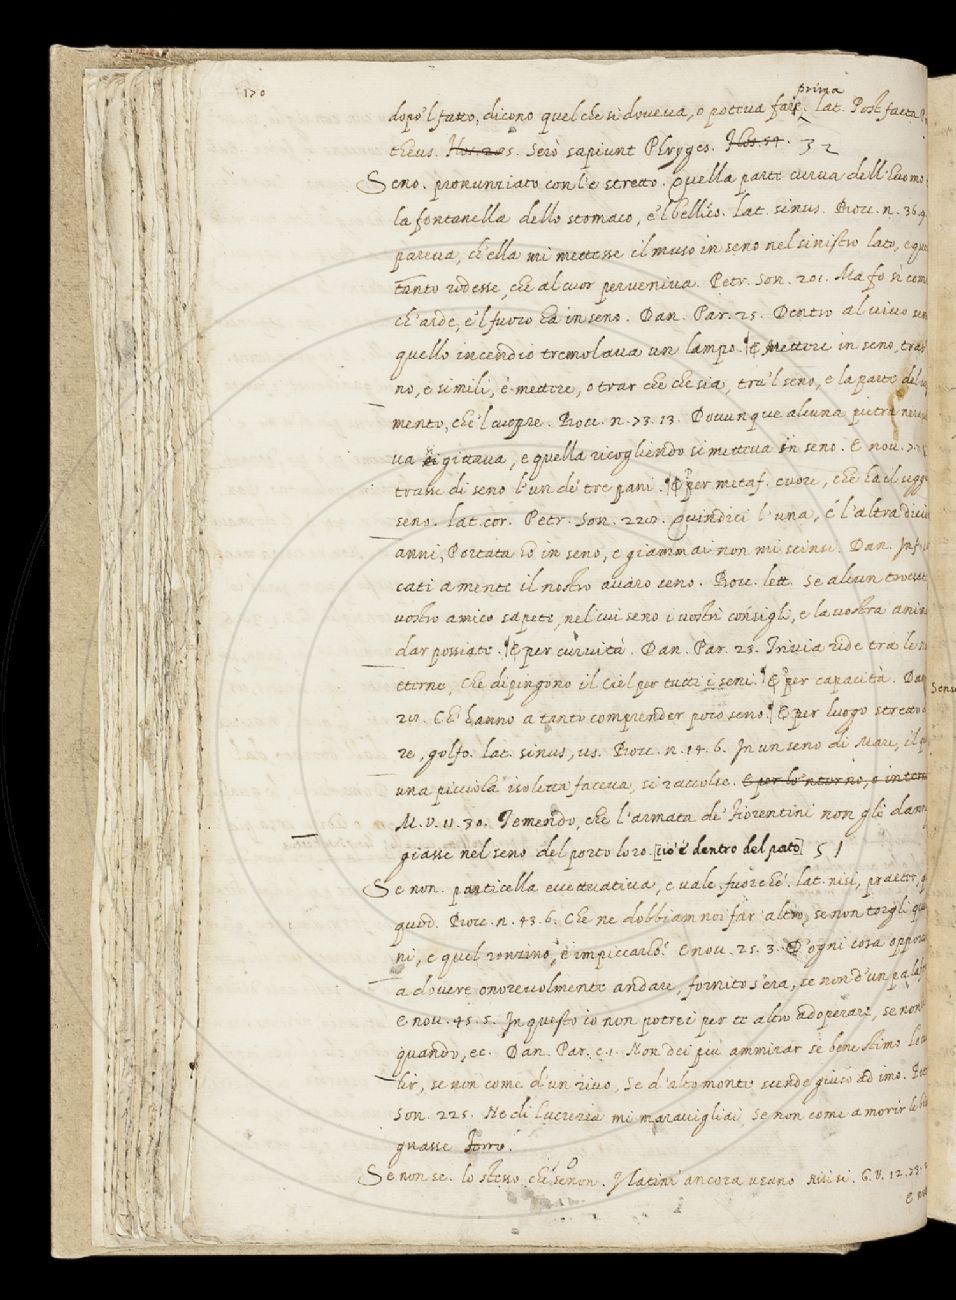 170
prima
dopo'l fatto, dicono quel che si doveva, o poteva fare. lat. Post facta
theus. Serò sapiunt Phryges. 32
Seno. pronunziato con l'e stretto. Quella parte curva dell'huomo
la fontanella dello stomaco, e'l bellíco. lat. sinus. Bocc. n. 36.
pareva, ch'ella mi mettesse il muso in seno nel sinistro lato, e
tanto rodesse, che al cuor perveniva. Petr. Son. 201. Ma fo sì com
ch'arde, e'l fuoco ha in seno. Dan. Par. 25. Dentro al vivo sen
quello incendio tremolava un lampo. ¶ E Mettere in seno, trar
no, e simili, è mettere, o trar che che sia, tra'l seno, e la parte del
mento, che'l cuopre. Bocc. n. 73. 13. Dovunque alcuna pietra ne
va si gittava, e quella ricogliendo si metteva in seno. E nov. 77.
trasse di seno l'un de' tre pani. ¶ E per metaf. cuore, che ha il
seno. lat. cor. Petr. Son. 228. Quindici l'una, e l'altra dici
anni, Portata ho in seno, e giammai non mi scinsi. Dan. Inf.
cati a mente il nostro avaro seno. Bocc. lett. Se alcun
vostro amico sapete, nel cui seno i vostri consigli, e la vostra
dar possiate. ¶ E per curvità. Dan. Par. 23. Trivia ride tra le
eterne, Che dipingono il Ciel per tutti i seni. ¶ E per capacità. Dan
28. C'hanno a tanto comprender poco seno. ¶ E per luogo stretto
Sens
re, golfo. lat. sinus, us. Bocc. n. 14. 6. In un seno di Mare, il
una piccola isoletta faceva, si raccolse. E per lo'ntorno, o intern
M. V. 11. 30. Temendo, che l'armata de' Fiorentini non gli dann
giasse nel seno del porto loro. [cio è dentro del pōto] 51
Se non. particella eccettuativa, e vale, fuorchè. lat. nisi, praeter,
quod. Bocc. n. 43. 6. Che ne dobbiam noi far altro, se non torgli que
ni, e quel ronzino, e impiccarlo? E nov. 25. 3. D'ogni cosa oppor
a dovere onorevolmente andare, fornito s'era, se non d'un
E nov. 45. 5. In questo io non potrei per te altro adoperare, se non
quando, ec. Dan. Par. c. 1. Non dei più ammirar se bene stimo Lo
lir, se non come d'un rivo, Se d'alto monte scende giuso ad imo.
Son. 225. Ne di Lucrezia mi maravigliai Se non come a morir le
gnasse
Se non se. lo stesso, che senon. I latini ancora usano nisi si. G. V. 12.